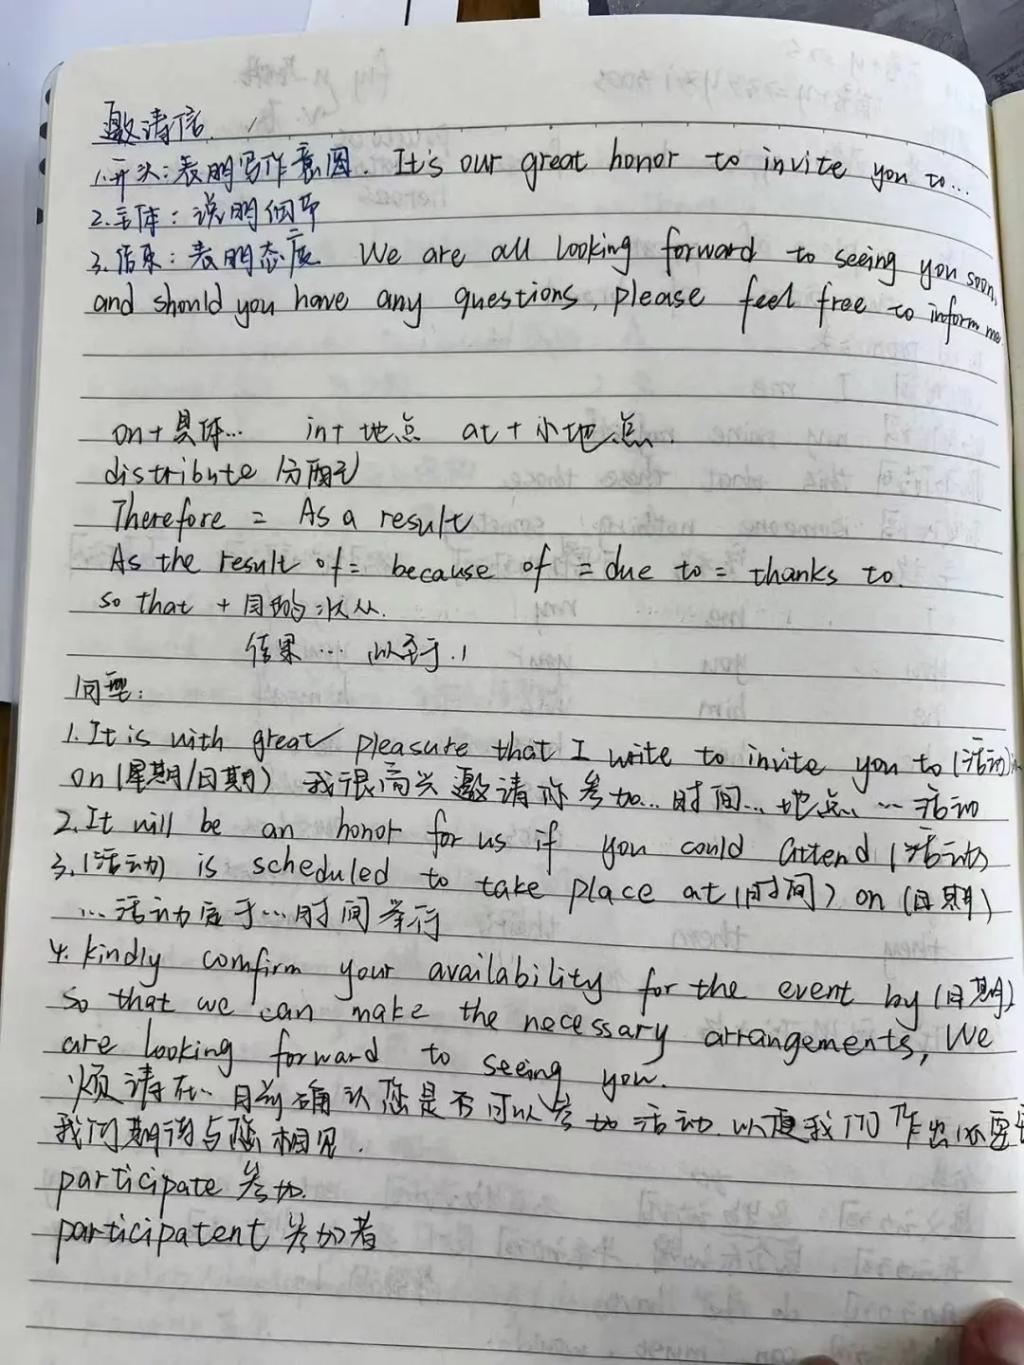 邀请信.
1.开头:表明写作意图. It's our great honor to invite you to...
2.主体:说明细节
3.结束:表明态度 We are all looking forward to seeing you soon,
and should you have any questions, please feel free to inform me
on+具体... in+地点 at+小地点.
distribute 分配
Therefore = As a result
As the result of = because of = due to = thanks to.
so that + 目的状从.
结果... 以至于.
句型:
1.It is with great pleasure that I write to invite you to (活动)
on (星期/日期) 我很高兴邀请你参加...时间...地点...活动
2.It will be an honor for us if you could attend (活动)
3.(活动) is scheduled to take place at (时间) on (日期)
...活动定于...时间举行
4.kindly comfirm your availability for the event by (日期)
so that we can make the necessary arrangements, We
are looking forward to seeing you.
烦请在...日前确认您是否可以参加活动.以便我们作出必要
我们期待与您相见.
participate 参加.
participatent 参加者